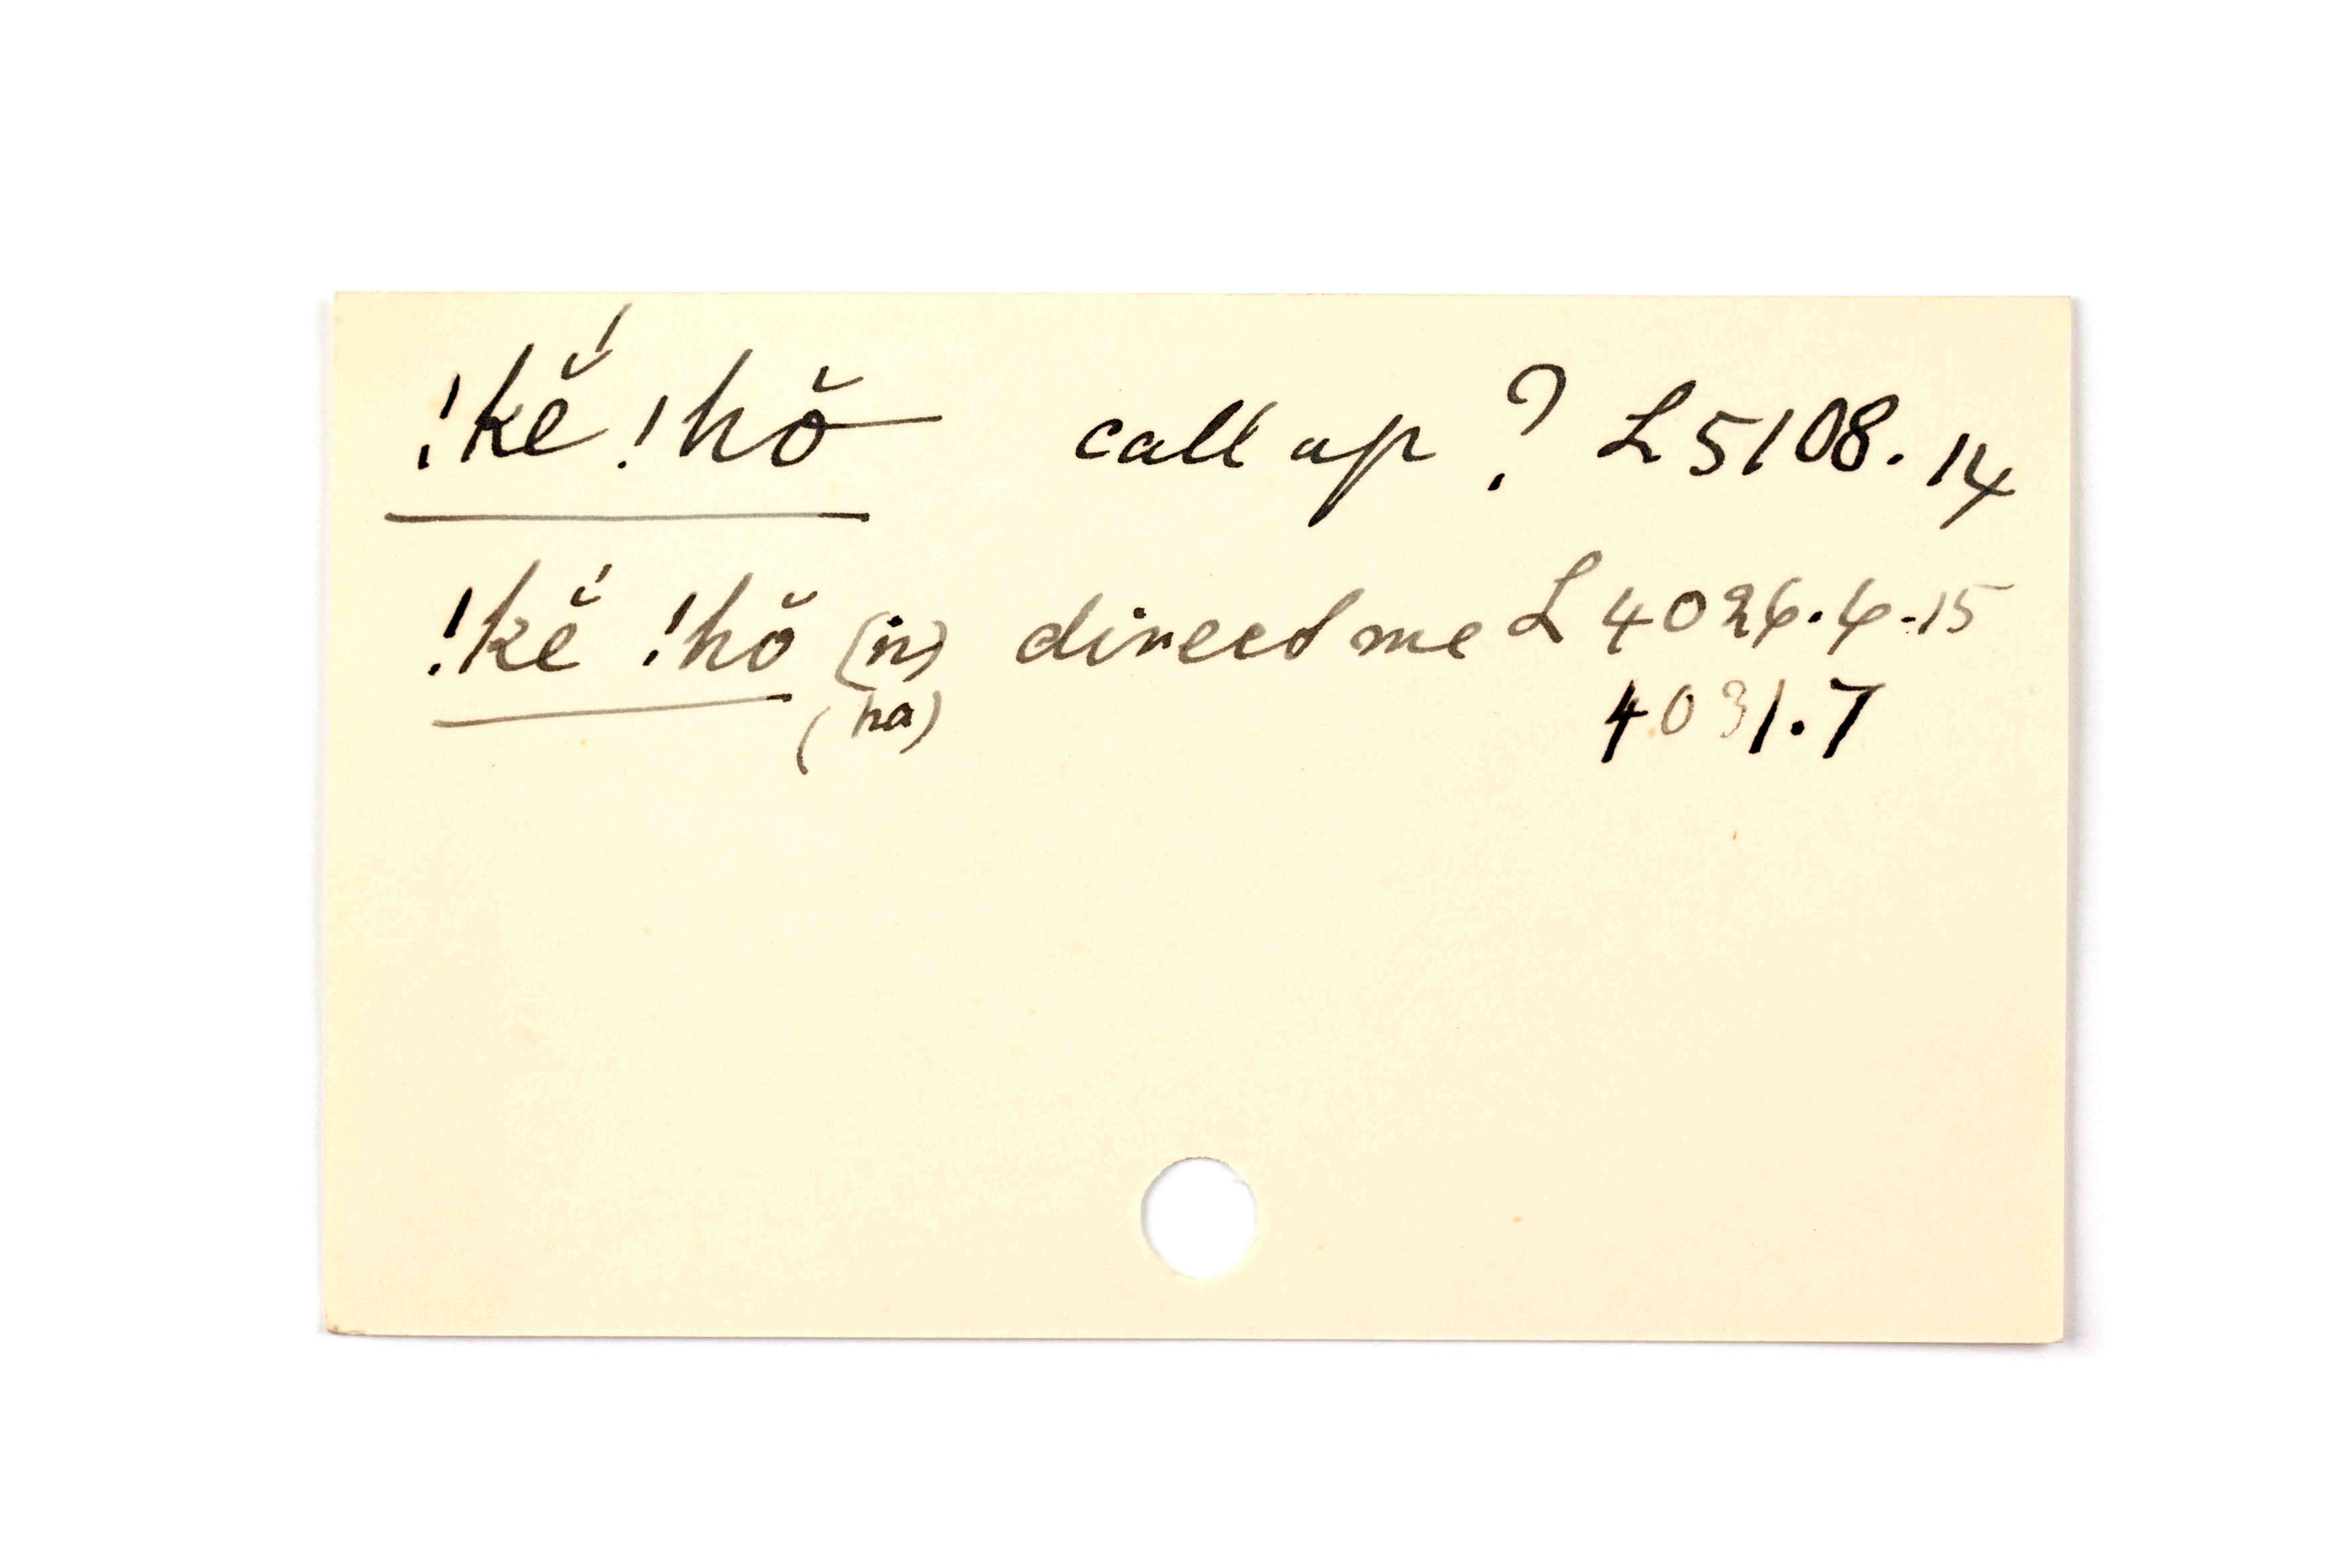 !kĕ́ !hŏ call up ? L 5108. 14
!kĕ́ !hŏ (n) direct me L 4026.6-15
(ha) 4031.7